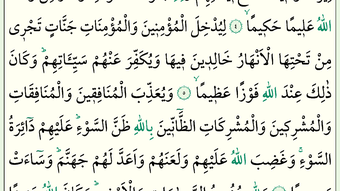 اللهُ عَلِيمًا حَكِيمًا ۝٤ لِيُدْخِلَ الْمُؤْمِنِينَ وَالْمُؤْمِنَاتِ جَنَّاتٍ تَجْرِى
مِنْ تَحْتِهَا الْاَنْهَارُ خَالِدِينَ فِيهَا وَيُكَفِّرَ عَنْهُمْ سَيِّئَاتِهِمْ وَكَانَ
ذٰلِكَ عِنْدَ اللهِ فَوْزًا عَظِيمًا ۝٥ وَيُعَذِّبَ الْمُنَافِقِينَ وَالْمُنَافِقَاتِ
وَالْمُشْرِكِينَ وَالْمُشْرِكَاتِ الظَّٓانِّينَ بِاللهِ ظَنَّ السَّوْءِ عَلَيْهِمْ دَٓائِرَةُ
السَّوْءِ وَغَضِبَ اللهُ عَلَيْهِمْ وَلَعَنَهُمْ وَاَعَدَّ لَهُمْ جَهَنَّمَ وَسَٓاءَتْ